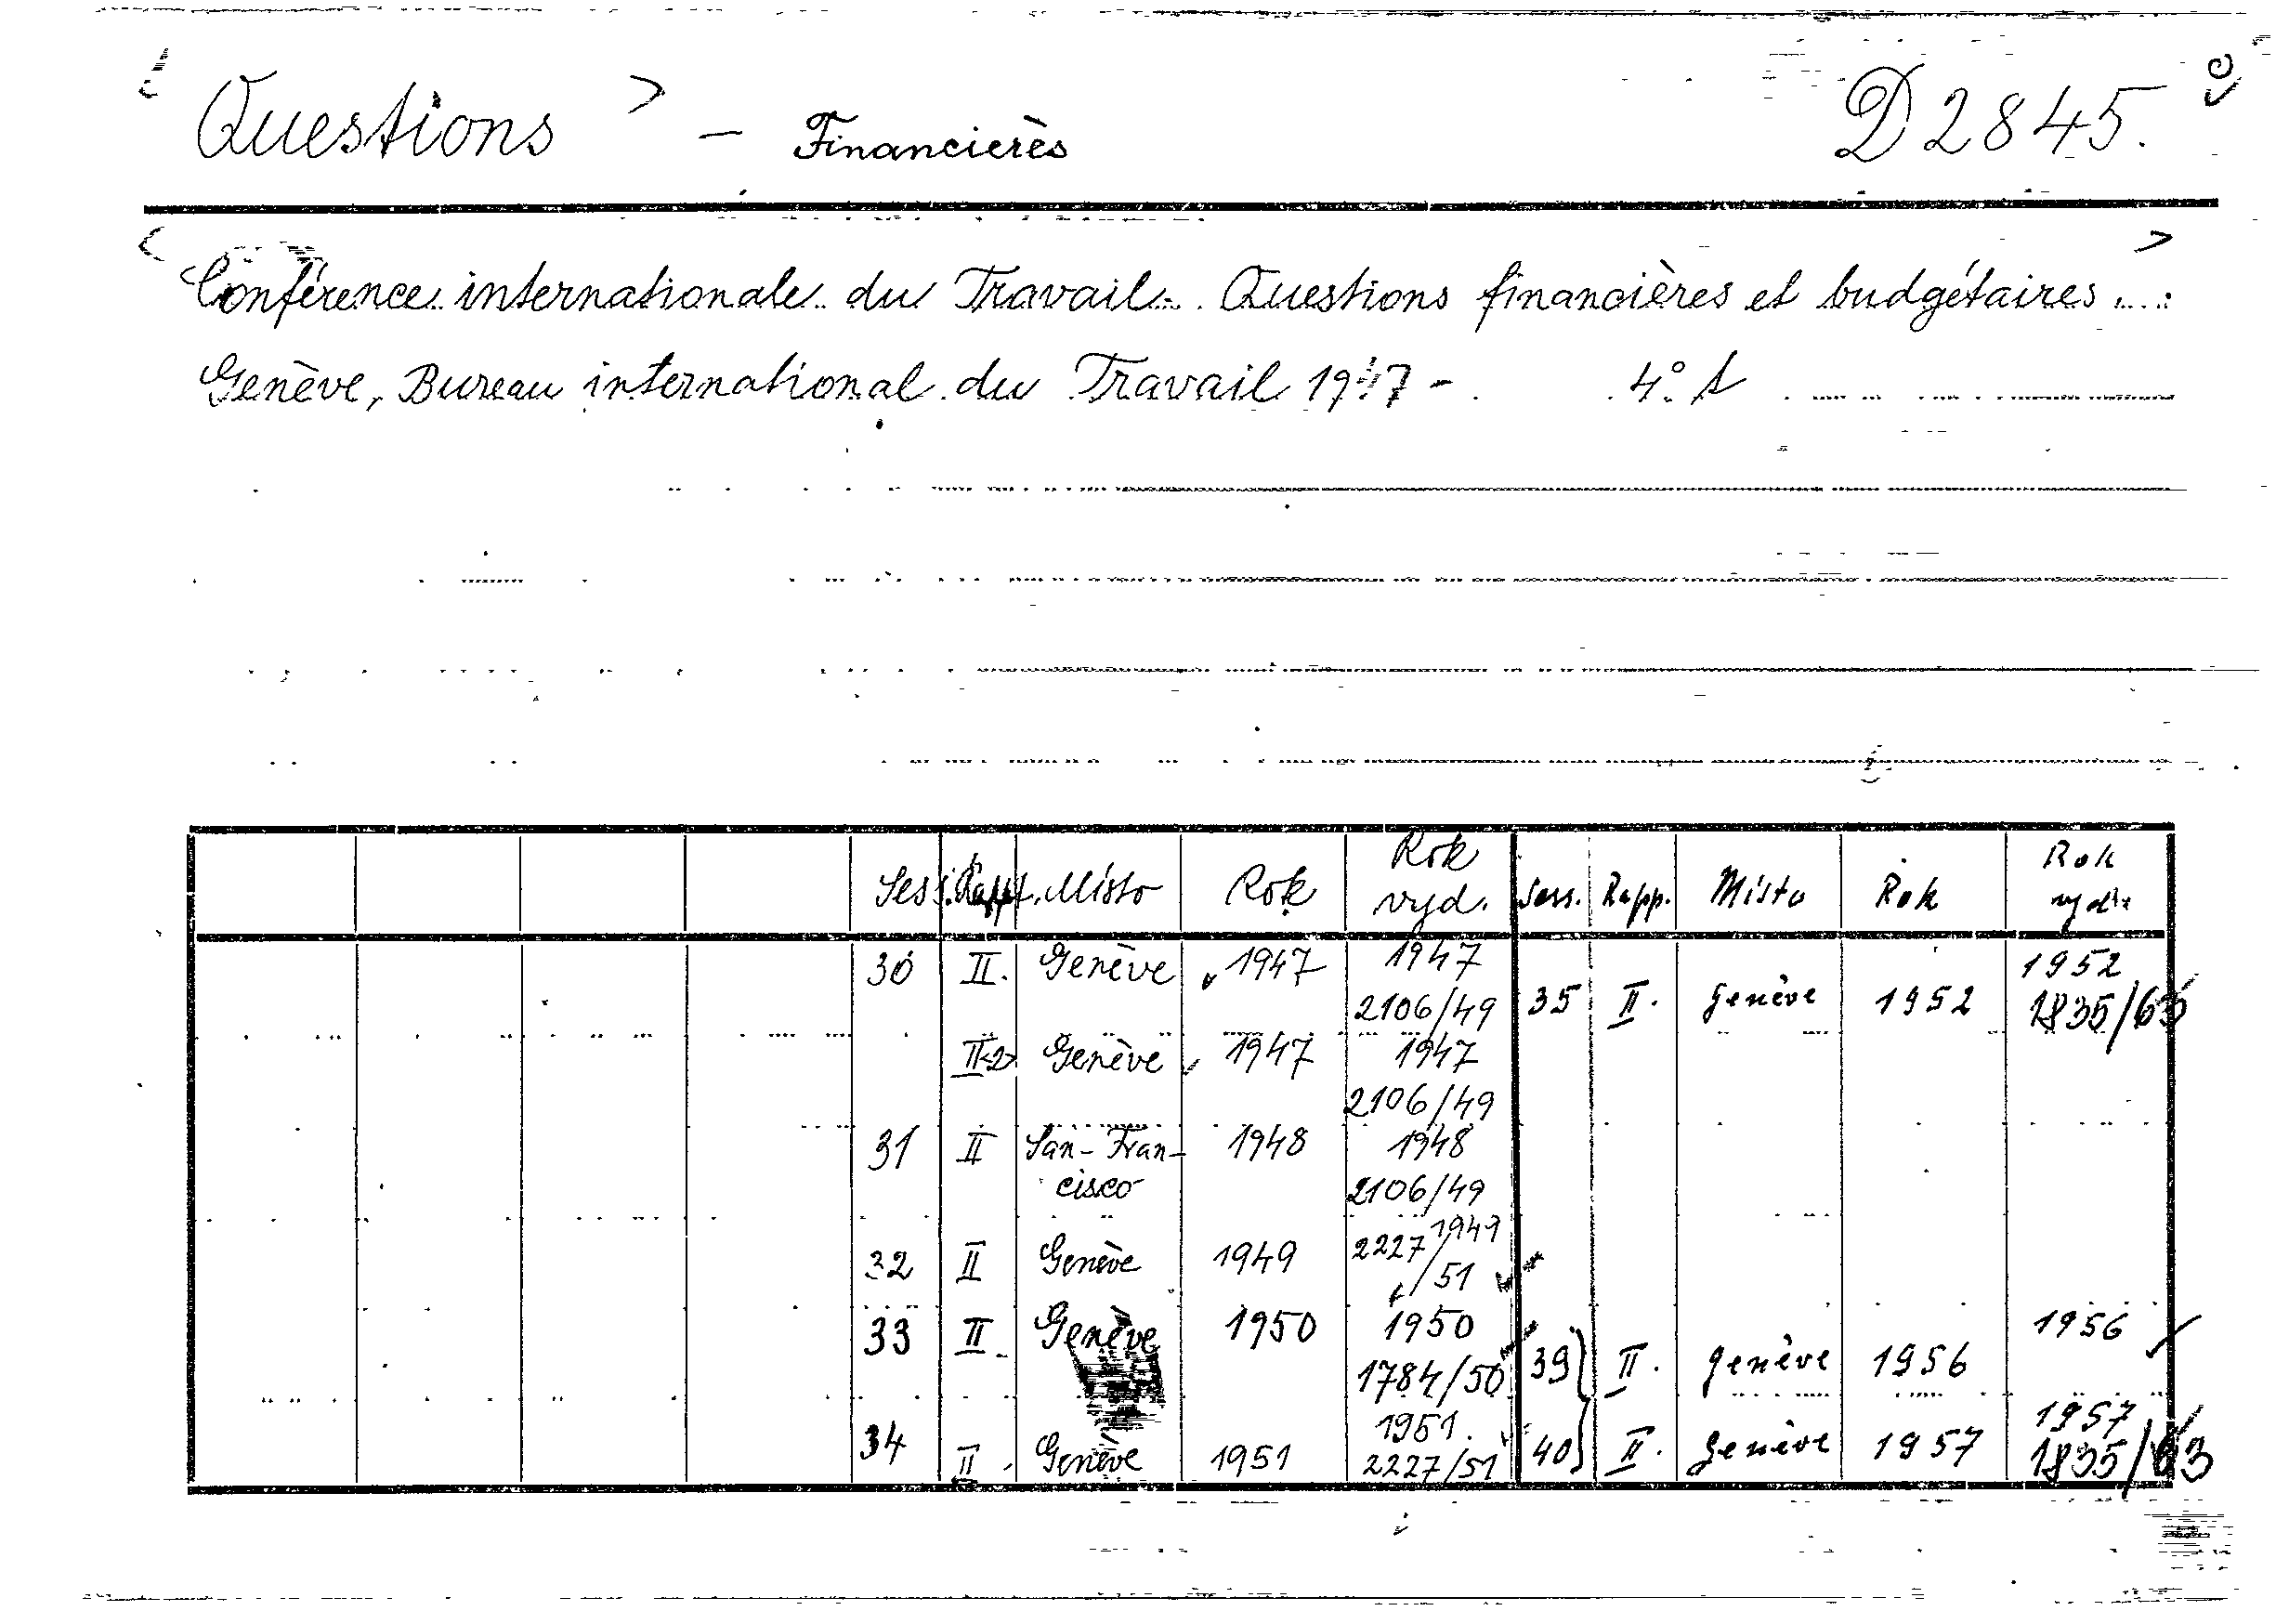 < Questions > – Financierès D 2845.
< Conférence internationale du Travail. Questions financières et budgétaires... >
Genève, Bureau international du Travail 1947 – 4° A
Sess. Rapp. Místo Rok Rok vyd. Sess. Rapp. Místo Rok Rok vyd.
30 II. Genève 1947 1947
2106/49
35 II. Genève 1952 1952
1835/63
II<2> Genève 1947 1947
2106/49
31 II San-Fran-
cisco 1948 1948
2106/49
32 II Genève 1949 1949
2227/51
33 II Genève 1950 1950
1784/50
39 II. Genève 1956 1956
34 II. Genève 1951 1951.
2227/51
40 II. Genève 1957 1957
1835/63